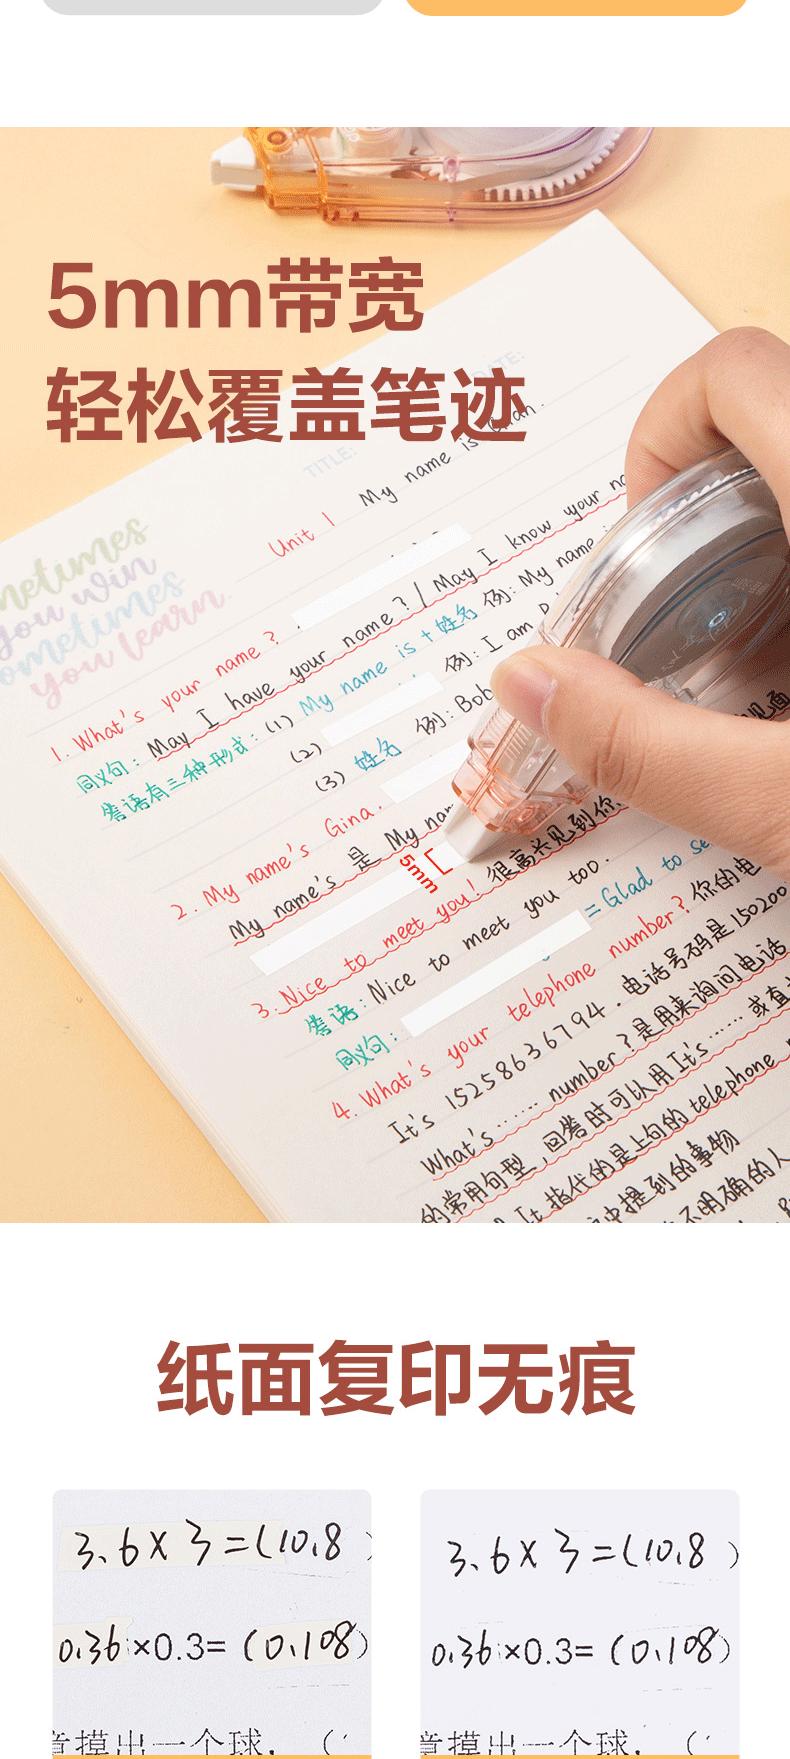 5mm带宽
轻松覆盖笔迹
DATE:
TITLE:
My name is
Unit 1
sometimes
you win
sometimes
you learn
1. What's your name?
May I have your name? / May I know your
同义句:
答语有三种形式: (1) My name is + 姓名 例: My name is
(2) 例: I am
(3) 姓名 例: Bob
2. My name's Gina.
My name's 是 My name
5mm
3. Nice to meet you! 很高兴见到你
答语: Nice to meet you too.
同义句: = Glad to see
4. What's your telephone number? 你的电
It's 15258636794. 电话号码是150200
What's …… number? 是用来询问电话
的常用句型, 回答时可以用It's …… 或直
It 指代的是上句的telephone
中提到的事物
不明确的人
纸面复印无痕
3.6×3=(10.8)
0.36×0.3=(0.108)
摸出一个球, (
3.6×3=(10.8)
0.36×0.3=(0.108)
摸出一个球, (